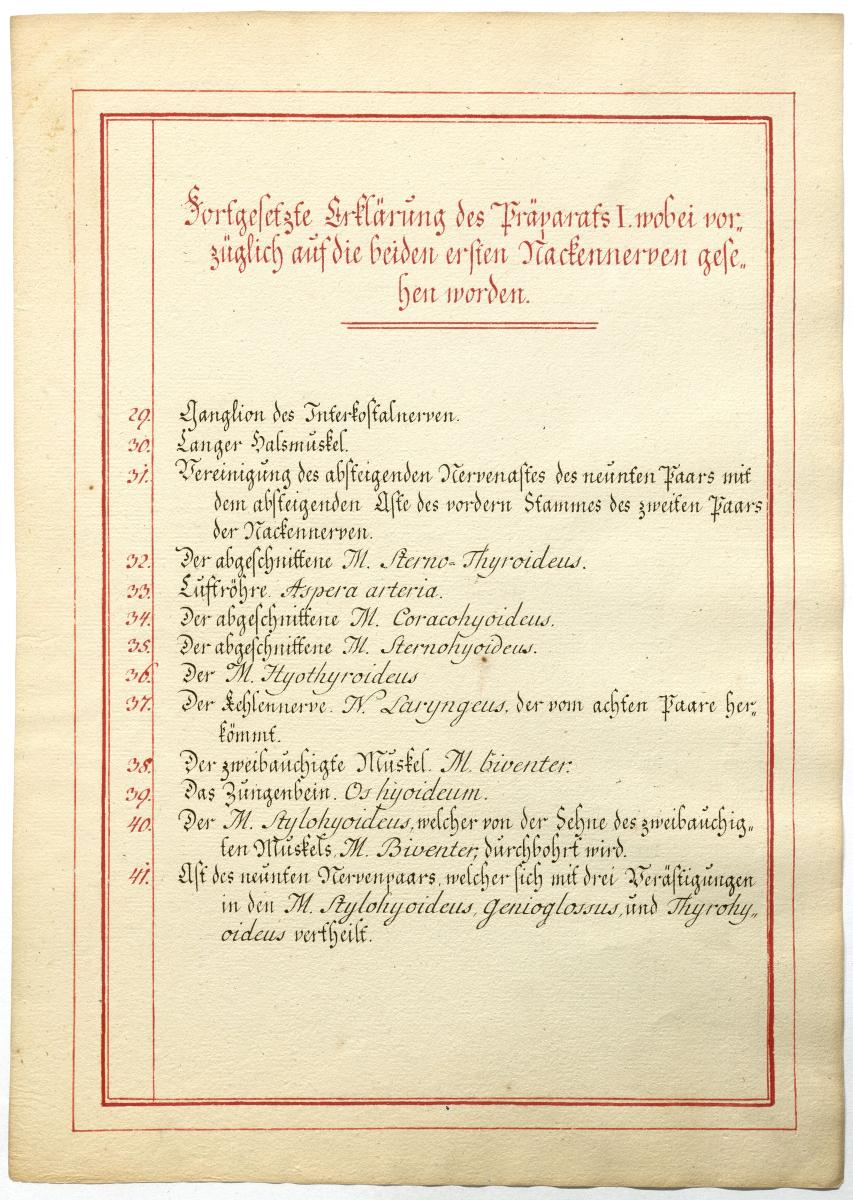 Fortgesetzte Erklärung des Präparats I. wobei vor„
züglich auf die beiden ersten Nackennerven gese„
hen worden.
29. Ganglion des Interkostalnerven.
30. Langer Halsmuskel.
31. Vereinigung des absteigenden Nervenastes des neunten Paars mit
dem absteigenden Aste des vordern Stammes des zweiten Paars
der Nackennerven.
32. Der abgeschnittene M. Sterno-Thyroideus.
33. Luftröhre. Aspera arteria.
34. Der abgeschnittene M. Coracohyoideus.
35. Der abgeschnittene M. Sternohyoideus.
36. Der M. Hyothyroideus
37. Der Kehlennerve. N. Laryngeus, der vom achten Paare her„
kömmt.
38. Der zweibauchigte Muskel. M. biventer.
39. Das Zungenbein. Os hyoideum.
40. Der M. Stylohyoideus, welcher von der Sehne des zweibauchig„
ten Muskels, M. Biventer, durchbohrt wird.
41. Ast des neunten Nervenpaars, welcher sich mit drei Verästigungen
in den M. Stylohyoideus, Genioglossus, und Thyrohy„
oideus vertheilt.